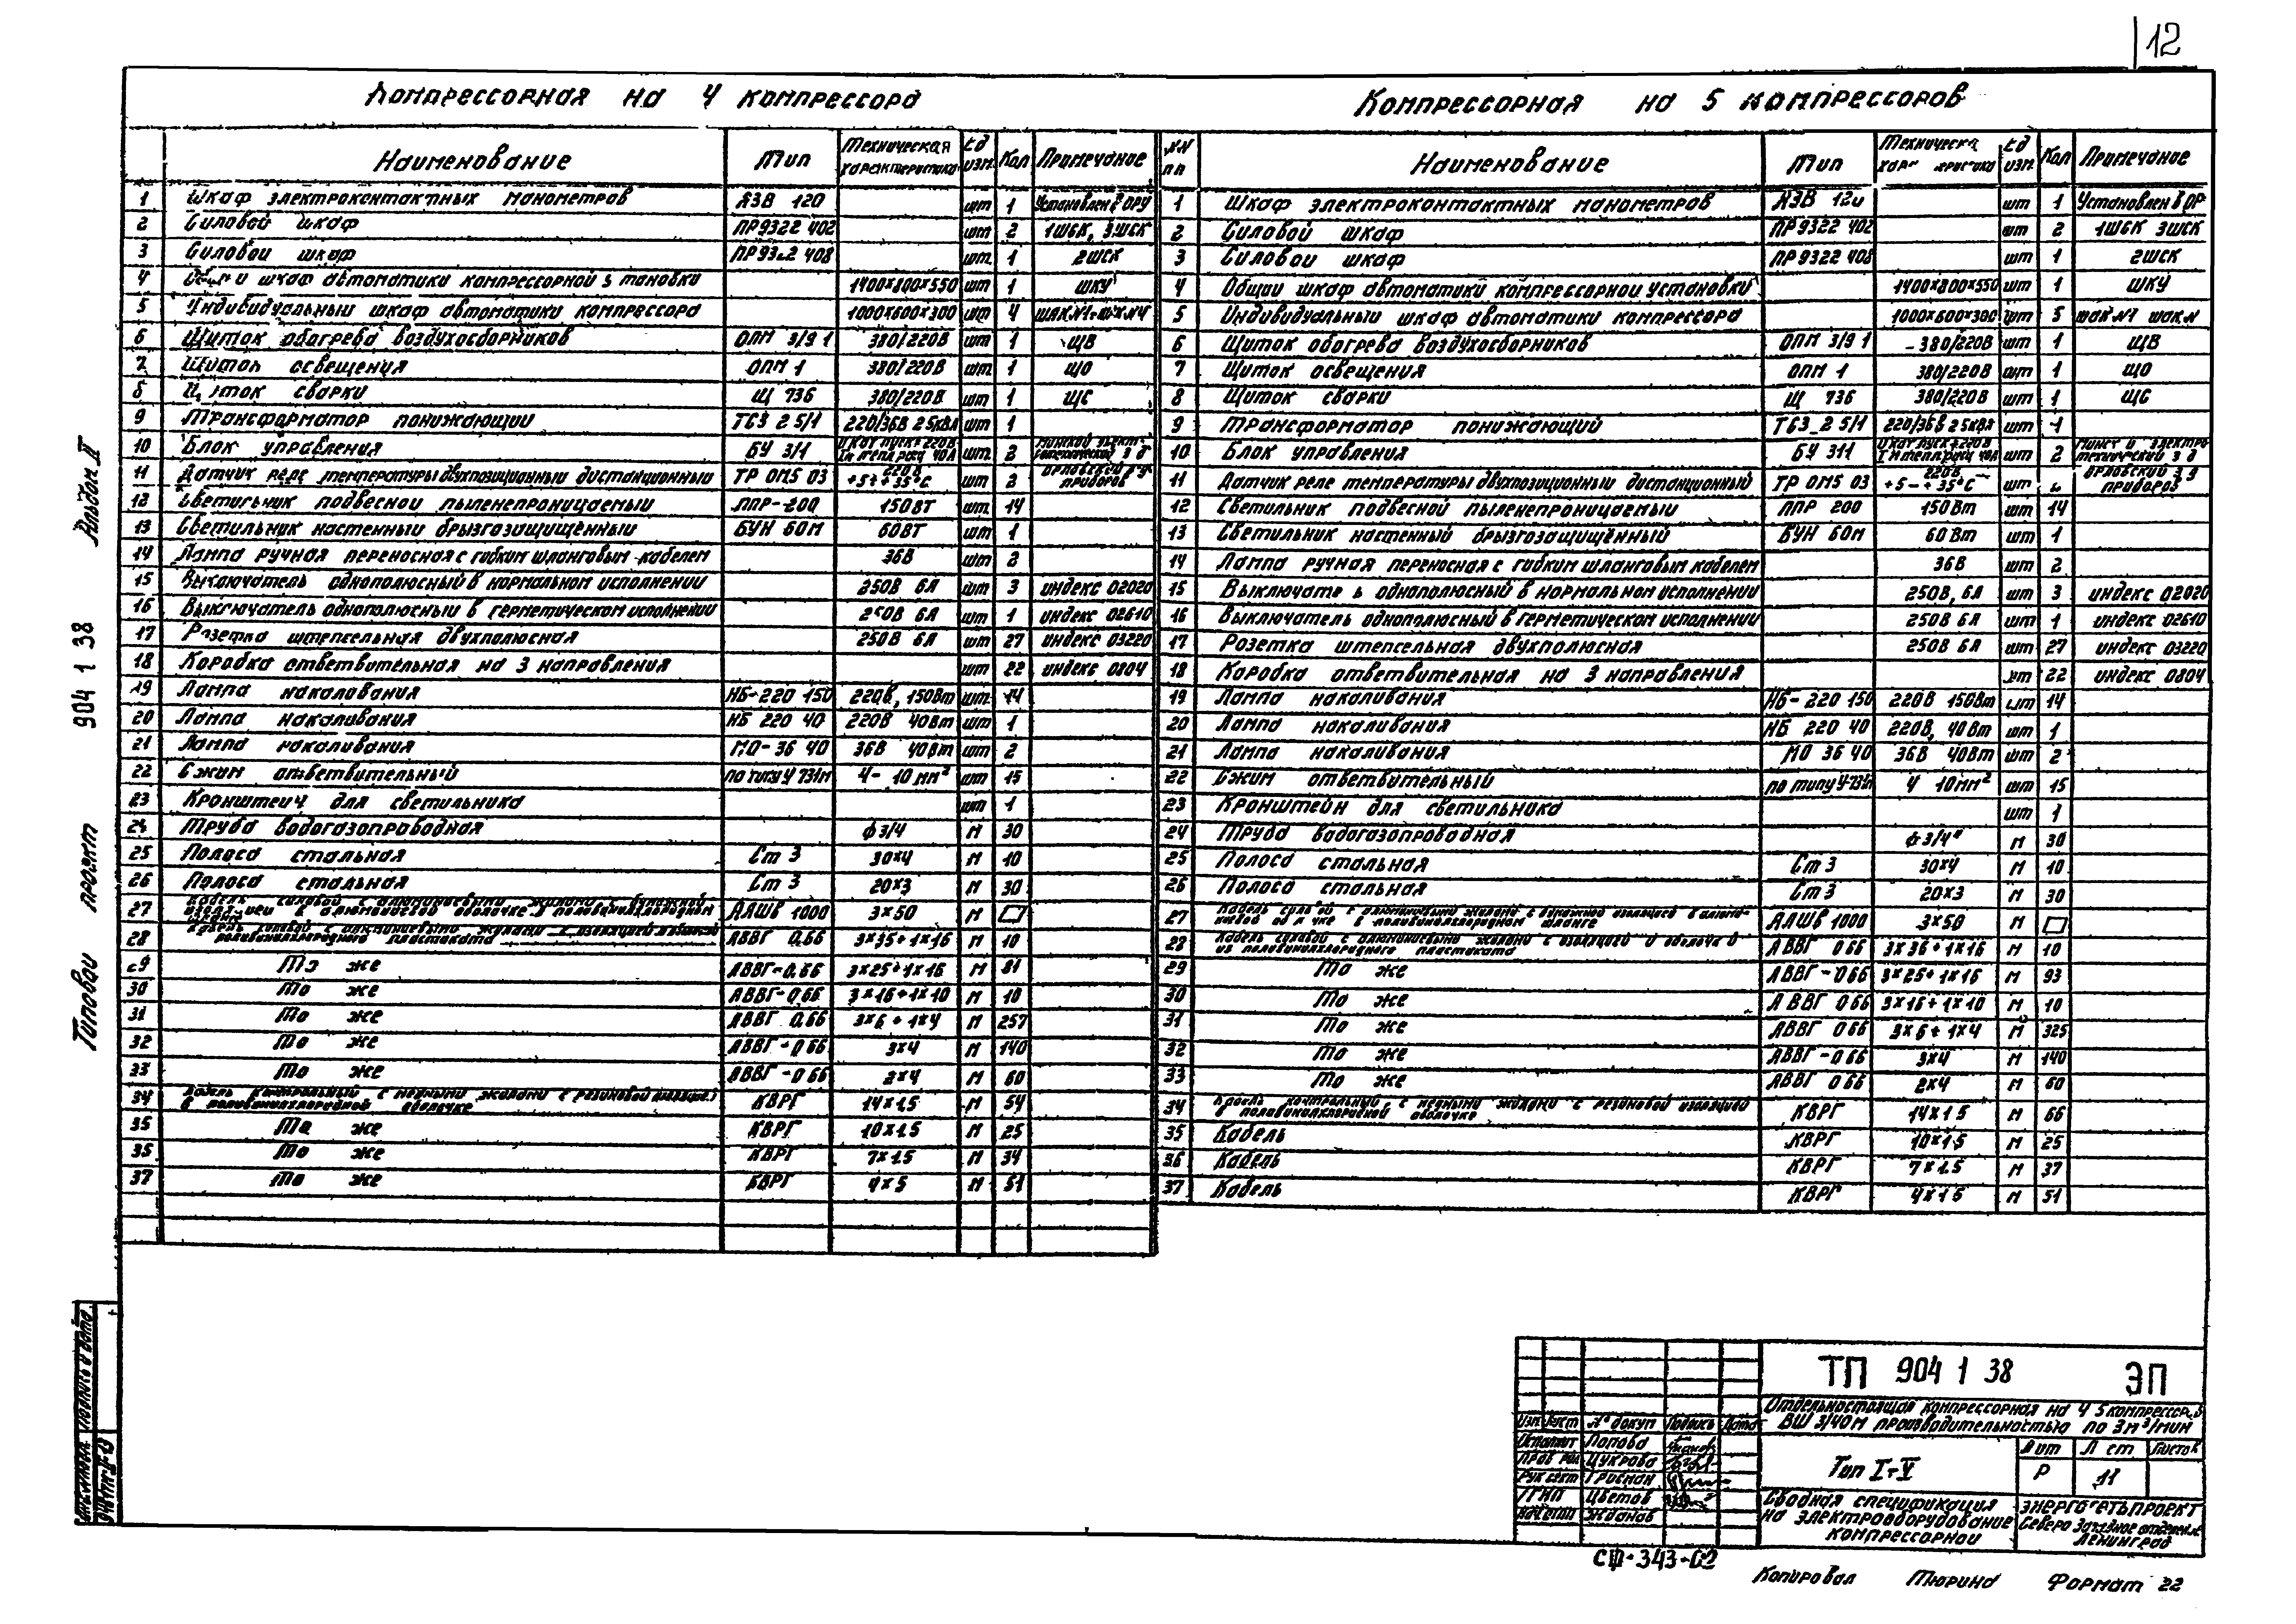 12
Компрессорная на 4 компрессора
Наименование Тип Техническая характеристика Ед изм. Кол Примечание
1 Шкаф электроконтактных манометров ЯЗВ 120 шт 1 Установлен в ОРУ
2 Силовой шкаф ПР9322 402 шт 2 1ШСК, 3ШСК
3 Силовой шкаф шт 1 2ШСК
4 шкаф автоматики компрессорной 1400×800×550 шт 1 ШКУ
5 Индивидуальный шкаф автоматики компрессора 1000×600×300 шт 4
6 Щиток обогрева воздухосборников ОПМ 3/9 1 380/220В шт 1 ЩВ
7 Щиток освещения ОПМ 1 380/220В шт 1 ЩО
8 Щиток сварки Щ 736 380/220В шт 1 ЩС
9 Трансформатор понижающий ТСЗ 2 5/1 220/36В 2 5кВА шт 1
10 Блок управления БУ 311 шт 2
11 Датчик реле температуры двухпозиционный дистанционный ТР ОМ5 03 220В +5÷+35°С шт 2
12 Светильник подвесной пыленепроницаемый ППР-200 150ВТ шт 14
13 Светильник настенный брызгозащищённый БУН 60М 60ВТ шт 1
14 Лампа ручная переносная с гибким шланговым кабелем 36В шт 2
15 Выключатель однополюсный в нормальном исполнении 250В 6А шт 3 индекс 02020
16 Выключатель однополюсный в герметическом исполнении 250В 6А шт 1 индекс 02610
17 Розетка штепсельная двухполюсная 250В 6А шт 27 индекс 03220
18 Коробка ответвительная на 3 направления шт 22 индекс 0804
19 Лампа накаливания НБ-220 150 220В, 150Вт шт 14
20 Лампа накаливания НБ 220 40 220В 40Вт шт 1
21 Лампа накаливания МО-36 40 36В 40Вт шт 2
22 Сжим ответвительный по типу У 731М 4- 10 мм² шт 15
23 Кронштейн для светильника шт 1
24 Труба водогазопроводная ф 3/4 м 30
25 Полоса стальная Ст 3 30×4 м 10
26 Полоса стальная Ст 3 20×3 м 30
27 ААШв 1000 3×50 м
28 АВВГ 0.66 3×35+1×16 м 10
29 То же АВВГ-0.66 3×25+1×16 м 81
30 То же АВВГ-0,66 3×16+1×10 м 10
31 То же АВВГ 0.66 3×6+1×4 м 257
32 То же АВВГ-0 66 3×4 м 140
33 То же АВВГ-0 66 2×4 м 60
34 Кабель контрольный с медными жилами с резиновой изоляцией в поливинилхлоридной оболочке КВРГ 14×1.5 м 54
35 То же КВРГ 10×1.5 м 25
35 То же КВРГ 7×1.5 м 34
37 То же КВРГ 4×5 м 51
Компрессорная на 5 компрессоров
NN пп Наименование Тип Ед изм. Кол Примечание
1 Шкаф электроконтактных манометров шт 1 Установлен в ОР
2 Силовой шкаф ПР9322 402 шт 2 1ШСК 3ШСК
3 Силовой шкаф ПР9322 408 шт 1 2ШСК
4 Общий шкаф автоматики компрессорной установки 1400×800×550 шт 1 ШКУ
5 Индивидуальный шкаф автоматики компрессора 1000×600×300 шт 5
6 Щиток обогрева воздухосборников ОПМ 3/9 1 380/220В шт 1 ЩВ
7 Щиток освещения ОПМ 1 380/220В шт 1 ЩО
8 Щиток сварки Щ 736 380/220В шт 1 ЩС
9 Трансформатор понижающий ТСЗ 2 5/1 220/36В 2 5кВА шт 1
10 Блок управления БУ 311 шт 2
11 Датчик реле температуры двухпозиционный дистанционный ТР ОМ5 03 220В +5-+35°С шт
12 Светильник подвесной пыленепроницаемый ППР 200 150Вт шт 14
13 Светильник настенный брызгозащищённый БУН 60М 60Вт шт 1
14 Лампа ручная переносная с гибким шланговым кабелем 36В шт 2
15 однополюсный в нормальном исполнении 250В, 6А шт 3 индекс 02020
16 Выключатель однополюсный в герметическом исполнении 250В 6А шт 1 индекс 02610
17 Розетка штепсельная двухполюсная 250В 6А шт 27 индекс 03220
18 Коробка ответвительная на 3 направления шт 22 индекс 0804
19 Лампа накаливания НБ-220 150 220В 150Вт шт 14
20 Лампа накаливания НБ 220 40 220В, 40Вт шт 1
21 Лампа накаливания МО 36 40 36В 40Вт шт 2
22 Сжим ответвительный по типу 4 10мм² шт 15
23 Кронштейн для светильника шт 1
24 Труба водогазопроводная ф 3/4" м 30
25 Полоса стальная Ст 3 30×4 м 10
26 Полоса стальная Ст 3 20×3 м 30
27 ААШв 1000 3×50 м
28 АВВГ 0 66 3×36+1×16 м 10
29 То же АВВГ-0 66 3×25+1×16 м 93
30 То же АВВГ 0 66 3×16+1×10 м 10
31 То же АВВГ 0 66 3×6+1×4 м 325
32 То же АВВГ-0 66 3×4 м 140
33 То же АВВГ 0 66 2×4 м 60
34 контрольный с медными жилами с резиновой изоляцией в поливинилхлоридной оболочке КВРГ 14×1 5 м 66
35 Кабель КВРГ 10×1.5 м 25
36 Кабель КВРГ 7×1.5 м 37
37 Кабель КВРГ 4×1 5 м 51
Типовой проект 904 1 38 Альбом II
ТП 904 1 38 ЭП
Отдельностоящая компрессорная на 4 5 компрессор
ВШ 3/40М производительностью по 3м³/мин
Изм Лист № докум Подпись Дата
Исполнит Попова
Цукрова
Рук сект Грисман
ГИП Цветов
Жданов
Тип I÷V
Лит
Р 11
Сводная спецификация
на электрооборудование
компрессорной
Энергосетьпроект
Северо Западное отделение
Ленинград
СФ-343-02
Копировал Тюрина Формат 22